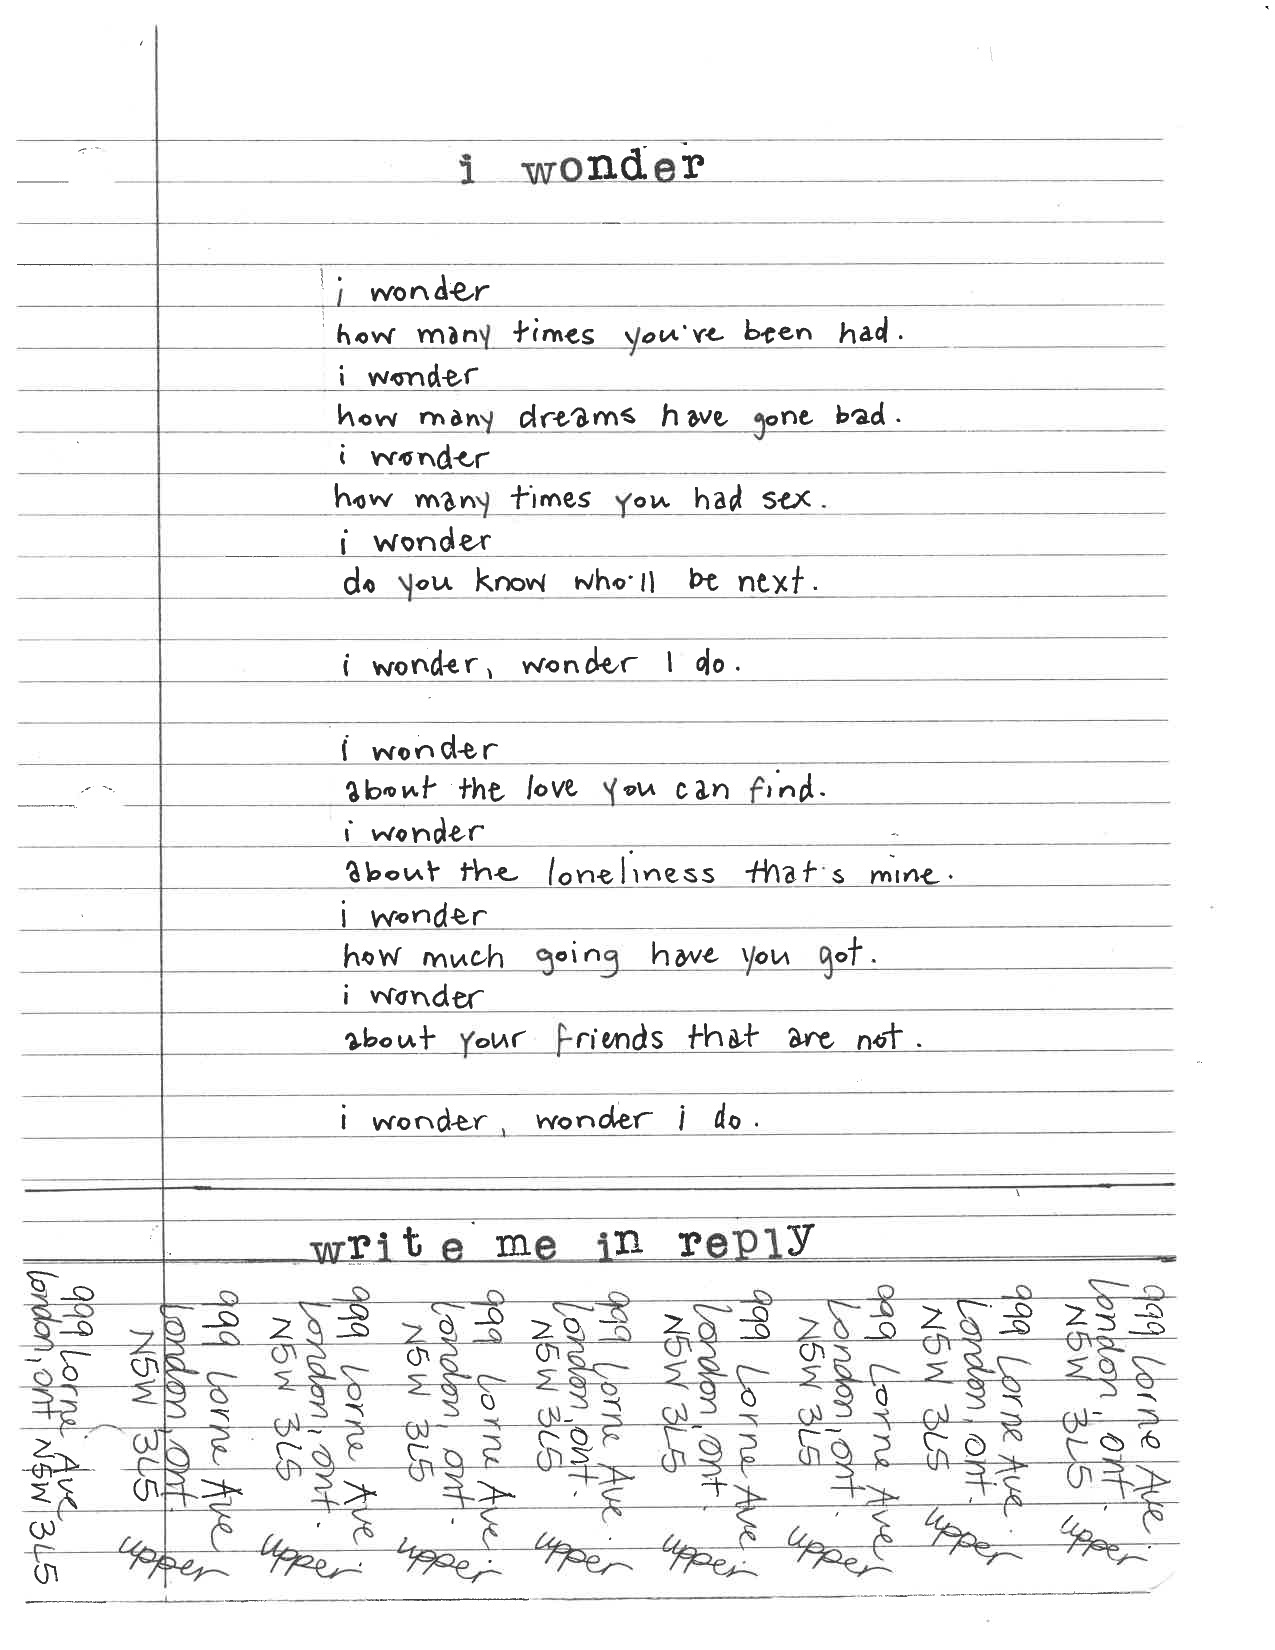 i wonder
i wonder
how many times you've been had.
i wonder
how many dreams have gone bad.
i wonder
how many times you had sex.
i wonder
do you know who'll be next.
i wonder, wonder I do.
i wonder
about the love you can find.
i wonder
about the loneliness that's mine.
i wonder
how much going have you got.
i wonder
about your friends that are not.
i wonder, wonder i do.
write me in reply
999 Lorne Ave
London, Ont N5W 3L5
999 Lorne Ave
London, Ont.
N5W 3L5
upper
999 Lorne Ave
London, Ont.
N5W 3L5
upper
999 Lorne Ave
London, Ont.
N5W 3L5
upper
999 Lorne Ave
London, Ont.
N5W 3L5
upper
999 Lorne Ave
London, Ont.
N5W 3L5
upper
999 Lorne Ave
London, Ont
N5W 3L5
upper
999 Lorne Ave.
London, Ont.
N5W 3L5
upper
999 Lorne Ave.
London, Ont.
N5W 3L5
upper